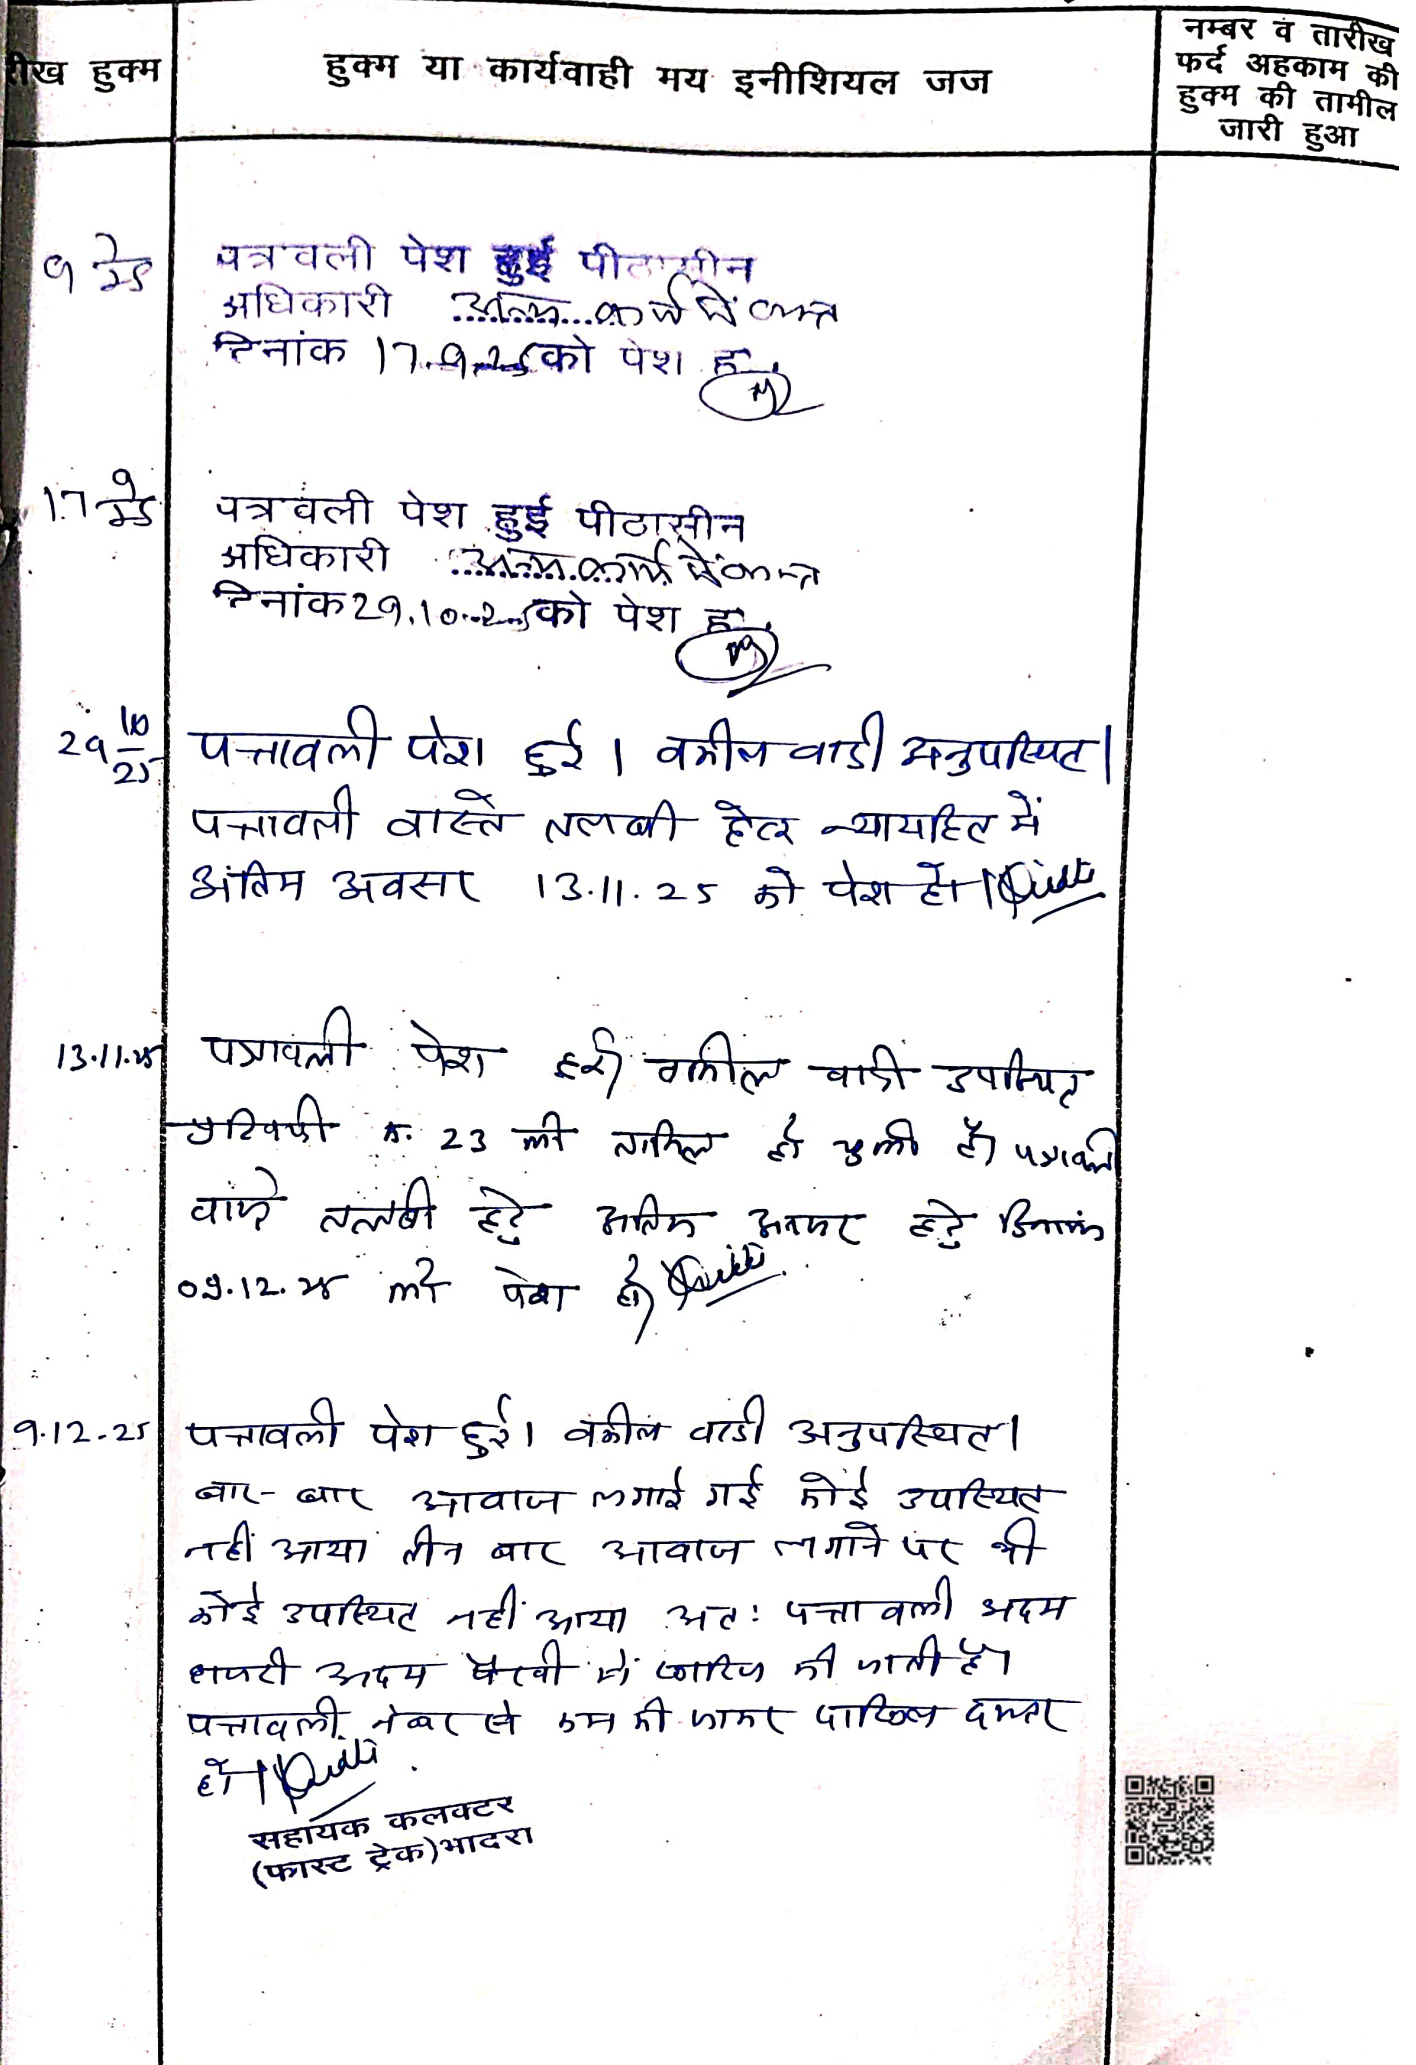 रीख हुक्म
हुक्म या कार्यवाही मय इनीशियल जज
नम्बर व तारीख
फर्द अहकाम की
हुक्म की तामील
जारी हुआ
पत्रावली पेश हुई पीठासीन
अधिकारी अन्य कार्य में व्यस्त
दिनांक 17.9.25 को पेश हो
17 9/25
पत्रावली पेश हुई पीठासीन
अधिकारी अन्य कार्य में व्यस्त
दिनांक 29.10.25 को पेश हो
29 10/25
पत्रावली पेश हुई। वकील वादी अनुपस्थित।
पत्रावली वास्ते तलबी हेतु न्यायहित में
अंतिम अवसर 13.11.25 को पेश हो।
13.11.25
पत्रावली पेश हुई। वकील वादी उपस्थित
प्रतिवादी क्र. 23 की तामिल हो चुकी है। पत्रावली
वास्ते तलबी हेतु अंतिम अवसर हेतु दिनांक
09.12.25 को पेश हो।
9.12.25
पत्रावली पेश हुई। वकील वादी अनुपस्थित।
बार-बार आवाज लगाई गई कोई उपस्थित
नहीं आया तीन बार आवाज लगाने पर भी
कोई उपस्थित नहीं आया अतः पत्रावली अदम
हाजरी अदम पैरवी में खारिज की जाती है।
पत्रावली नंबर से कम की जाकर दाखिल दफ्तर
हो।
सहायक कलक्टर
(फास्ट ट्रेक) भादरा